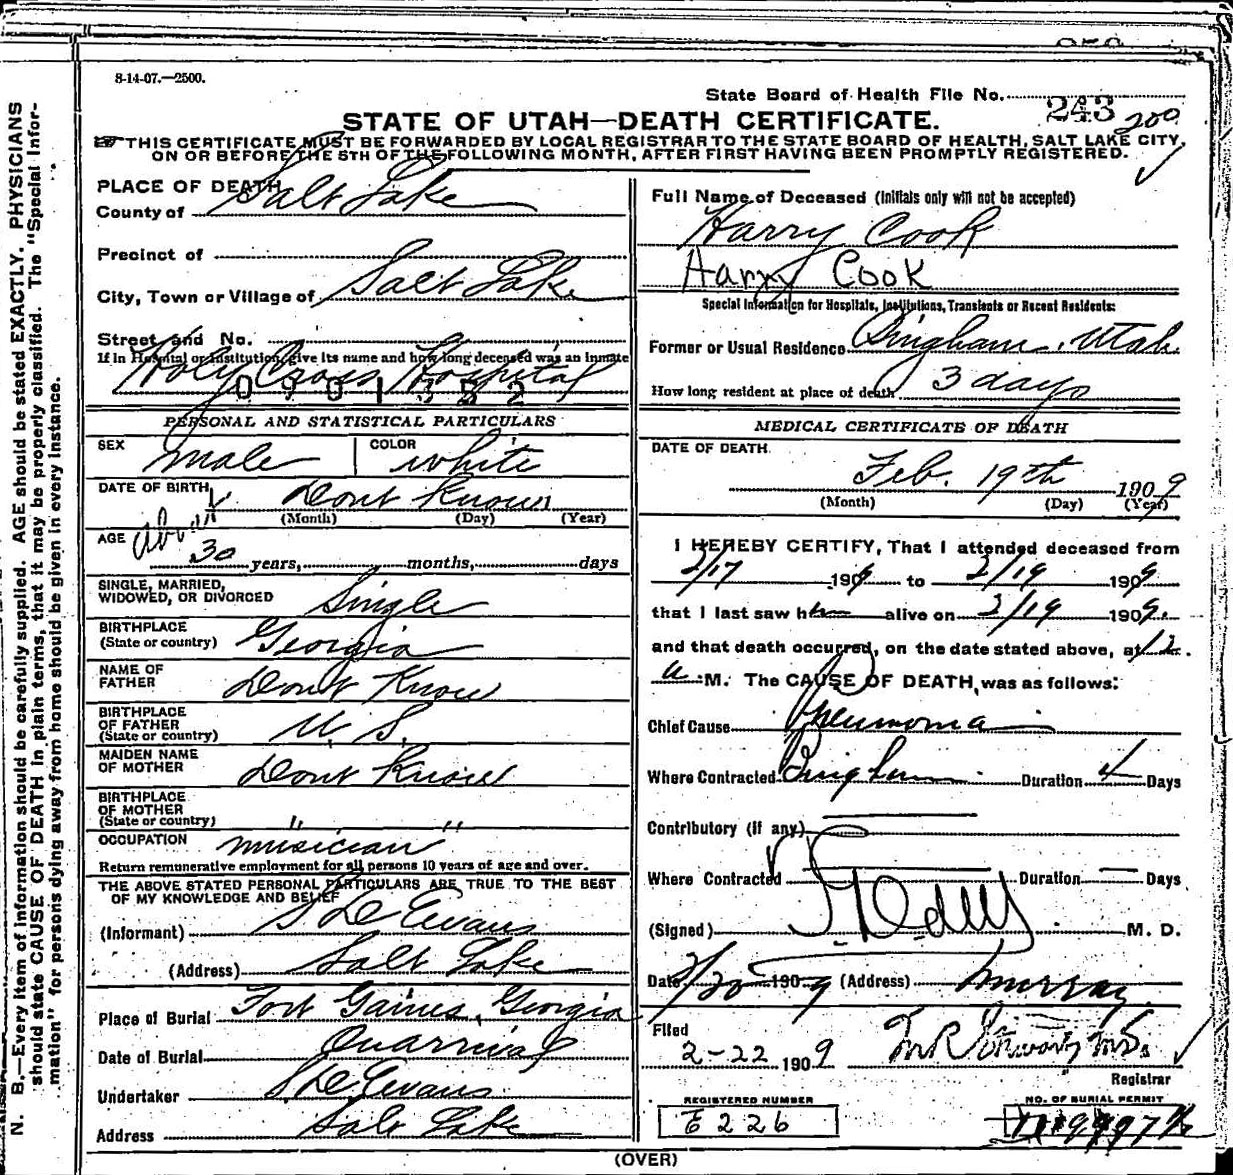 8-14-07.—2500.
State Board of Health File No. 243 200
STATE OF UTAH—DEATH CERTIFICATE.
THIS CERTIFICATE MUST BE FORWARDED BY LOCAL REGISTRAR TO THE STATE BOARD OF HEALTH, SALT LAKE CITY,
ON OR BEFORE THE 5TH OF THE FOLLOWING MONTH, AFTER FIRST HAVING BEEN PROMPTLY REGISTERED.
N. B.—Every item of information should be carefully supplied. AGE should be stated EXACTLY. PHYSICIANS
should state CAUSE OF DEATH in plain terms, that it may be properly classified. The "Special Infor-
mation" for persons dying away from home should be given in every instance.
PLACE OF DEATH
County of Salt Lake
Precinct of
City, Town or Village of Salt Lake
Street and No.
If in Hospital or Institution, give its name and how long deceased was an inmate
Holy Cross Hospital
0901352
PERSONAL AND STATISTICAL PARTICULARS
SEX male COLOR white
DATE OF BIRTH Dont Know
(Month) (Day) (Year)
AGE about
30 years, months, days
SINGLE, MARRIED,
WIDOWED, OR DIVORCED Single
BIRTHPLACE
(State or country) Georgia
NAME OF
FATHER Dont Know
BIRTHPLACE
OF FATHER
(State or country) U. S.
MAIDEN NAME
OF MOTHER Dont Know
BIRTHPLACE
OF MOTHER
(State or country) " "
OCCUPATION musician
Return remunerative employment for all persons 10 years of age and over.
THE ABOVE STATED PERSONAL PARTICULARS ARE TRUE TO THE BEST
OF MY KNOWLEDGE AND BELIEF
(Informant) S D Evans
(Address) Salt Lake
Place of Burial Fort Gaines, Georgia
Date of Burial On arrival
Undertaker S D Evans
Address Salt Lake
Full Name of Deceased (Initials only will not be accepted)
Harry Cook
Harry Cook
Special Information for Hospitals, Institutions, Transients or Recent Residents:
Former or Usual Residence Bingham, Utah
How long resident at place of death 3 days
MEDICAL CERTIFICATE OF DEATH
DATE OF DEATH
Feb. 19th 1909
(Month) (Day) (Year)
I HEREBY CERTIFY, That I attended deceased from
2/17 1909 to 2/19 1909
that I last saw h alive on 2/19 1909.
and that death occurred, on the date stated above, at 12.
a M. The CAUSE OF DEATH, was as follows:
Chief Cause Pneumonia
Where Contracted Bingham Duration 4 Days
Contributory (if any)
Where Contracted Duration — Days
(Signed) M. D.
Date 2/20 1909 (Address) Murray
Filed
2-22 1909
Registrar
REGISTERED NUMBER
E 226
NO. OF BURIAL PERMIT
(OVER)